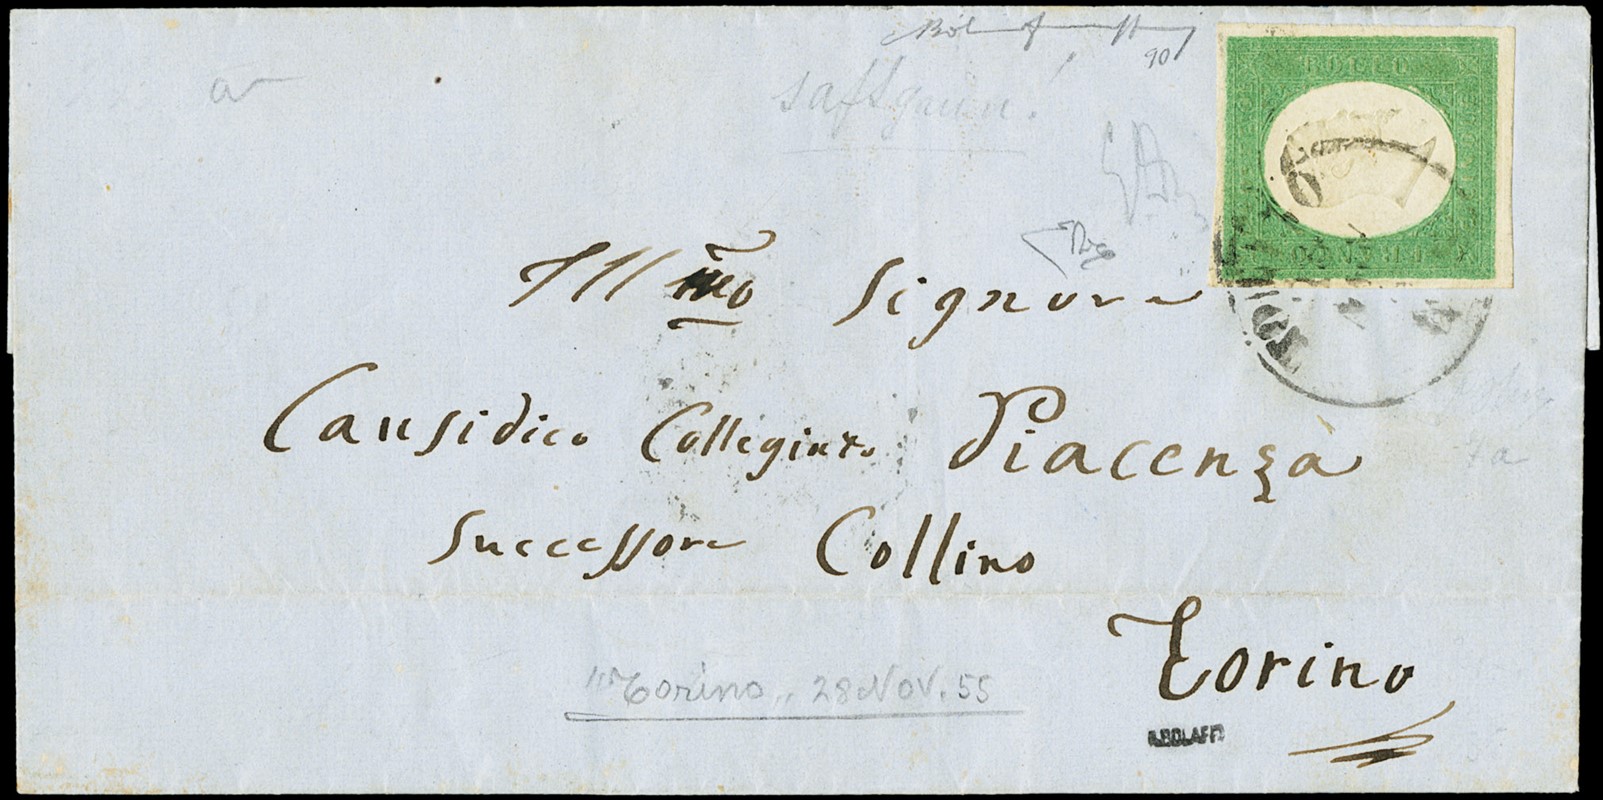 90
saftgrün!
BOLLO
FRANCO
Ill mo Signore
Causidico Collegiato Piacenza
Successore Collino
Torino
"Torino" 28 NOV. 55
A.BOLAFFI
7a